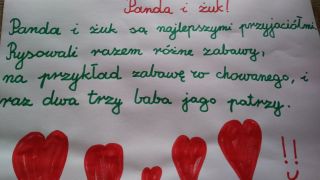 Panda i żuk!
Panda i żuk są najlepszymi przyjaciółmi.
Rysowali razem różne zabawy,
na przykład zabawę w chowanego, i
raz dwa trzy baba jago patrzy.
!!